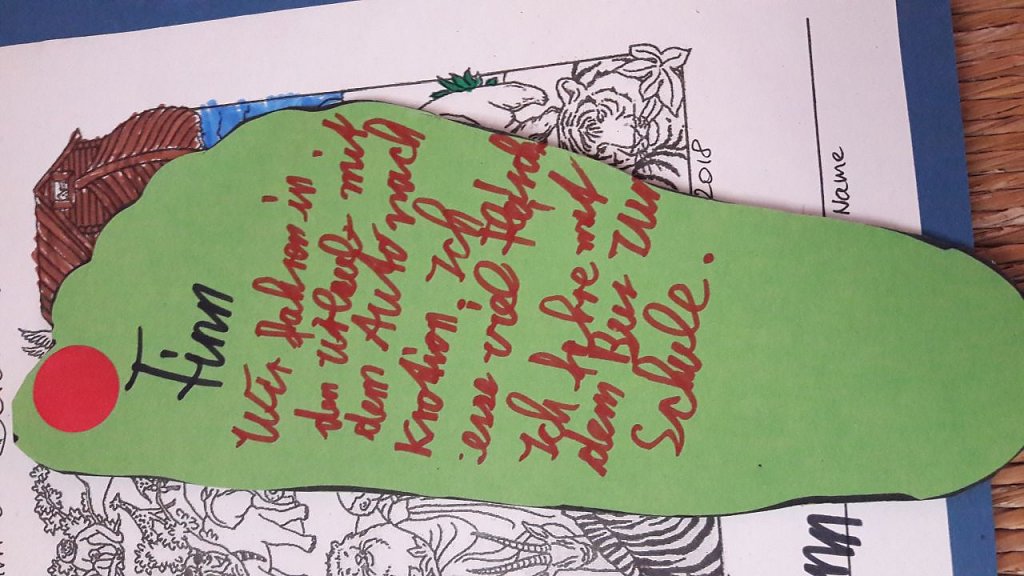 Finn
Wir fahren in
den Urlaub mit
dem Auto nach
Kroation Ich
esse viel
Ich fahre mit
dem Bus zur
Schule.
2018
Name